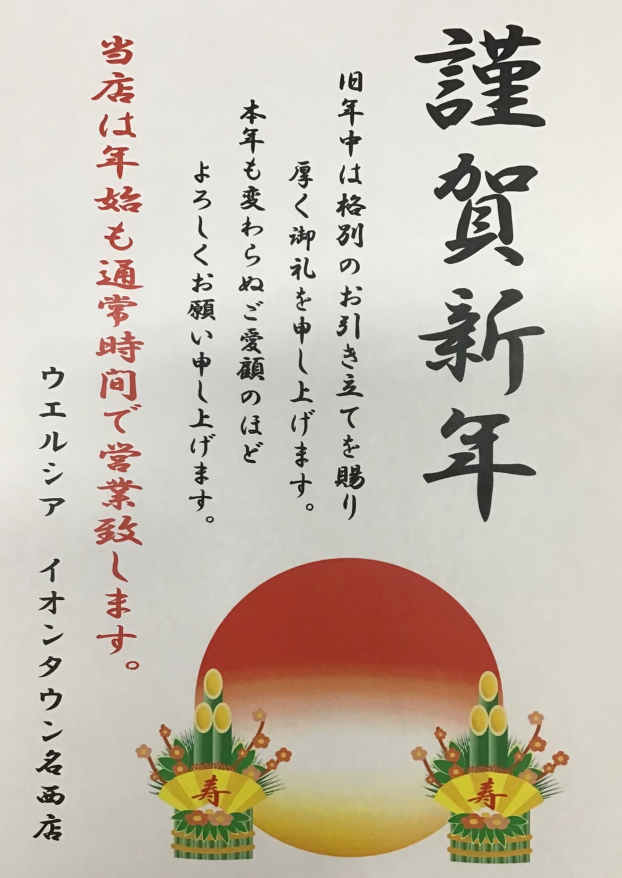 謹賀新年
旧年中は格別のお引き立てを賜り
厚く御礼を申し上げます。
本年も変わらぬご愛顧のほど
よろしくお願い申し上げます。
当店は年始も通常時間で営業致します。
ウエルシア イオンタウン名西店
寿
寿